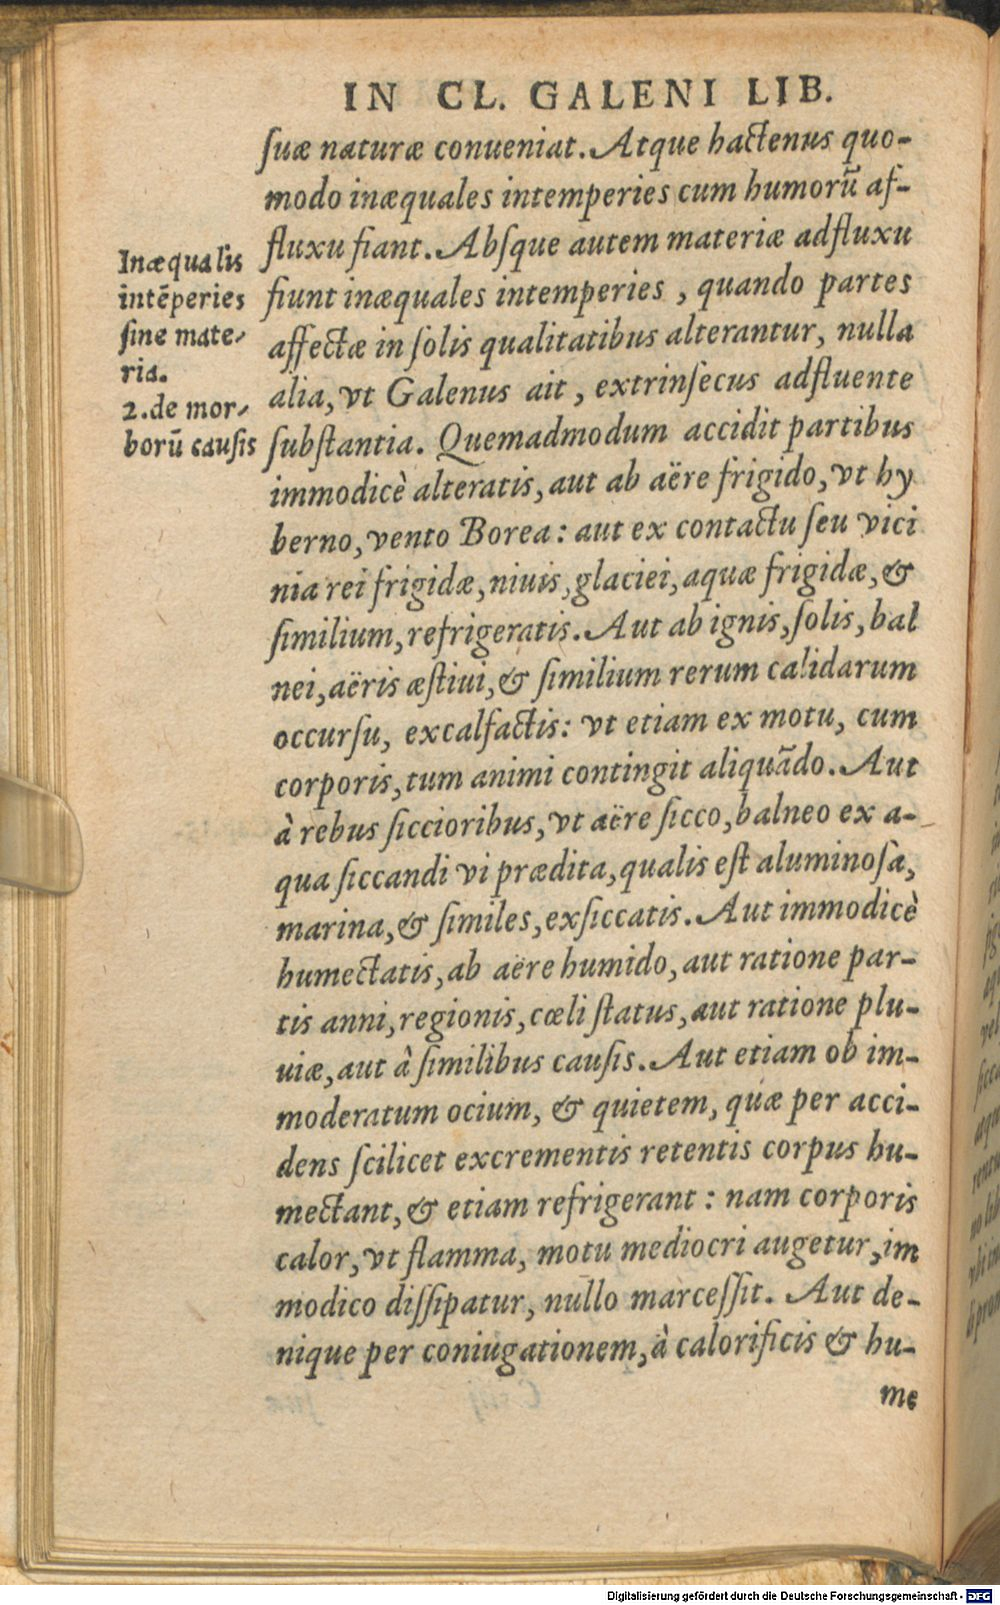 IN CL. GALENI LIB.
ſuæ naturæ conueniat. Atque hactenus quo-
modo inæquales intemperies cum humorũ af-
fluxu fiant. Abſque autem materiæ adfluxu
fiunt inæquales intemperies, quando partes
affectæ in ſolis qualitatibus alterantur, nulla
alia, vt Galenus ait, extrinſecus adfluente
ſubſtantia. Quemadmodum accidit partibus
immodicè alteratis, aut ab aëre frigido, vt hy
berno, vento Borea: aut ex contactu ſeu vici
nia rei frigidæ, niuis, glaciei, aquæ frigidæ, &
ſimilium, refrigeratis. Aut ab ignis, ſolis, bal
nei, aëris æſtiui, & ſimilium rerum calidarum
occurſu, excalfactis: vt etiam ex motu, cum
corporis, tum animi contingit aliquãdo. Aut
à rebus ſiccioribus, vt aëre ſicco, balneo ex a-
qua ſiccandi vi prædita, qualis eſt aluminoſa,
marina, & ſimiles, exſiccatis. Aut immodicè
humectatis, ab aëre humido, aut ratione par-
tis anni, regionis, cœli ſtatus, aut ratione plu-
uiæ, aut à ſimilibus cauſis. Aut etiam ob im-
moderatum ocium, & quietem, quæ per acci-
dens ſcilicet excrementis retentis corpus hu-
mectant, & etiam refrigerant: nam corporis
calor, vt flamma, motu mediocri augetur, im
modico diſſipatur, nullo marceſſit. Aut de-
nique per coniugationem, à calorificis & hu-
me
Inæqualis
intẽperies
ſine mate-
ria.
2. de mor-
borũ cauſis
Digitalisierung gefördert durch die Deutsche Forschungsgemeinschaft - DFG